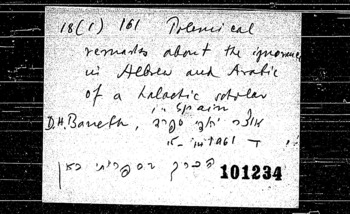 18(1) 161 Polemical
remarks about the ignorance
in Hebrew and Arabic
of a halachic scholar
in Spain
D.H. Baneth, אוצר יהודי ספרד,
ד
101234